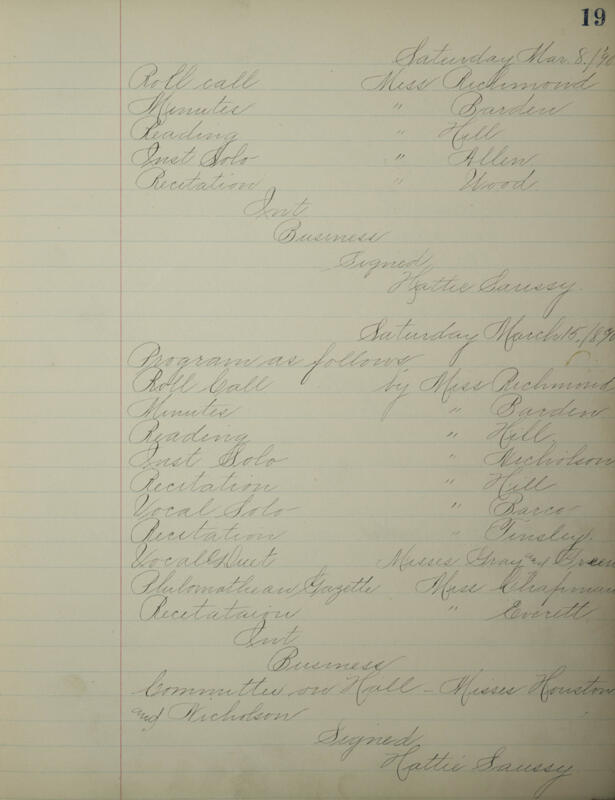 19
Saturday Mar. 8./'90
Roll call Miss Richmond
Minutes " Barden
Reading " Hill
Inst Solo " Allen
Recitation " Wood.
Int
Business
Signed
Hattie Saussy.
Saturday March 15,/890
Program as follows
Roll Call by Miss Richmond
Minutes " Barden
Reading " Hill
Inst Solo " Nicholson
Recitation " Hill
Vocal Solo " Barco
Recitation " Tinsley.
Vocal Duet Misses Gray and Green
Philomathean Gazette Miss Chapman
Recetataion " Everett
Int
Business
Committee on Hall - Misses Houston
and Nicholson
Signed
Hattie Saussy